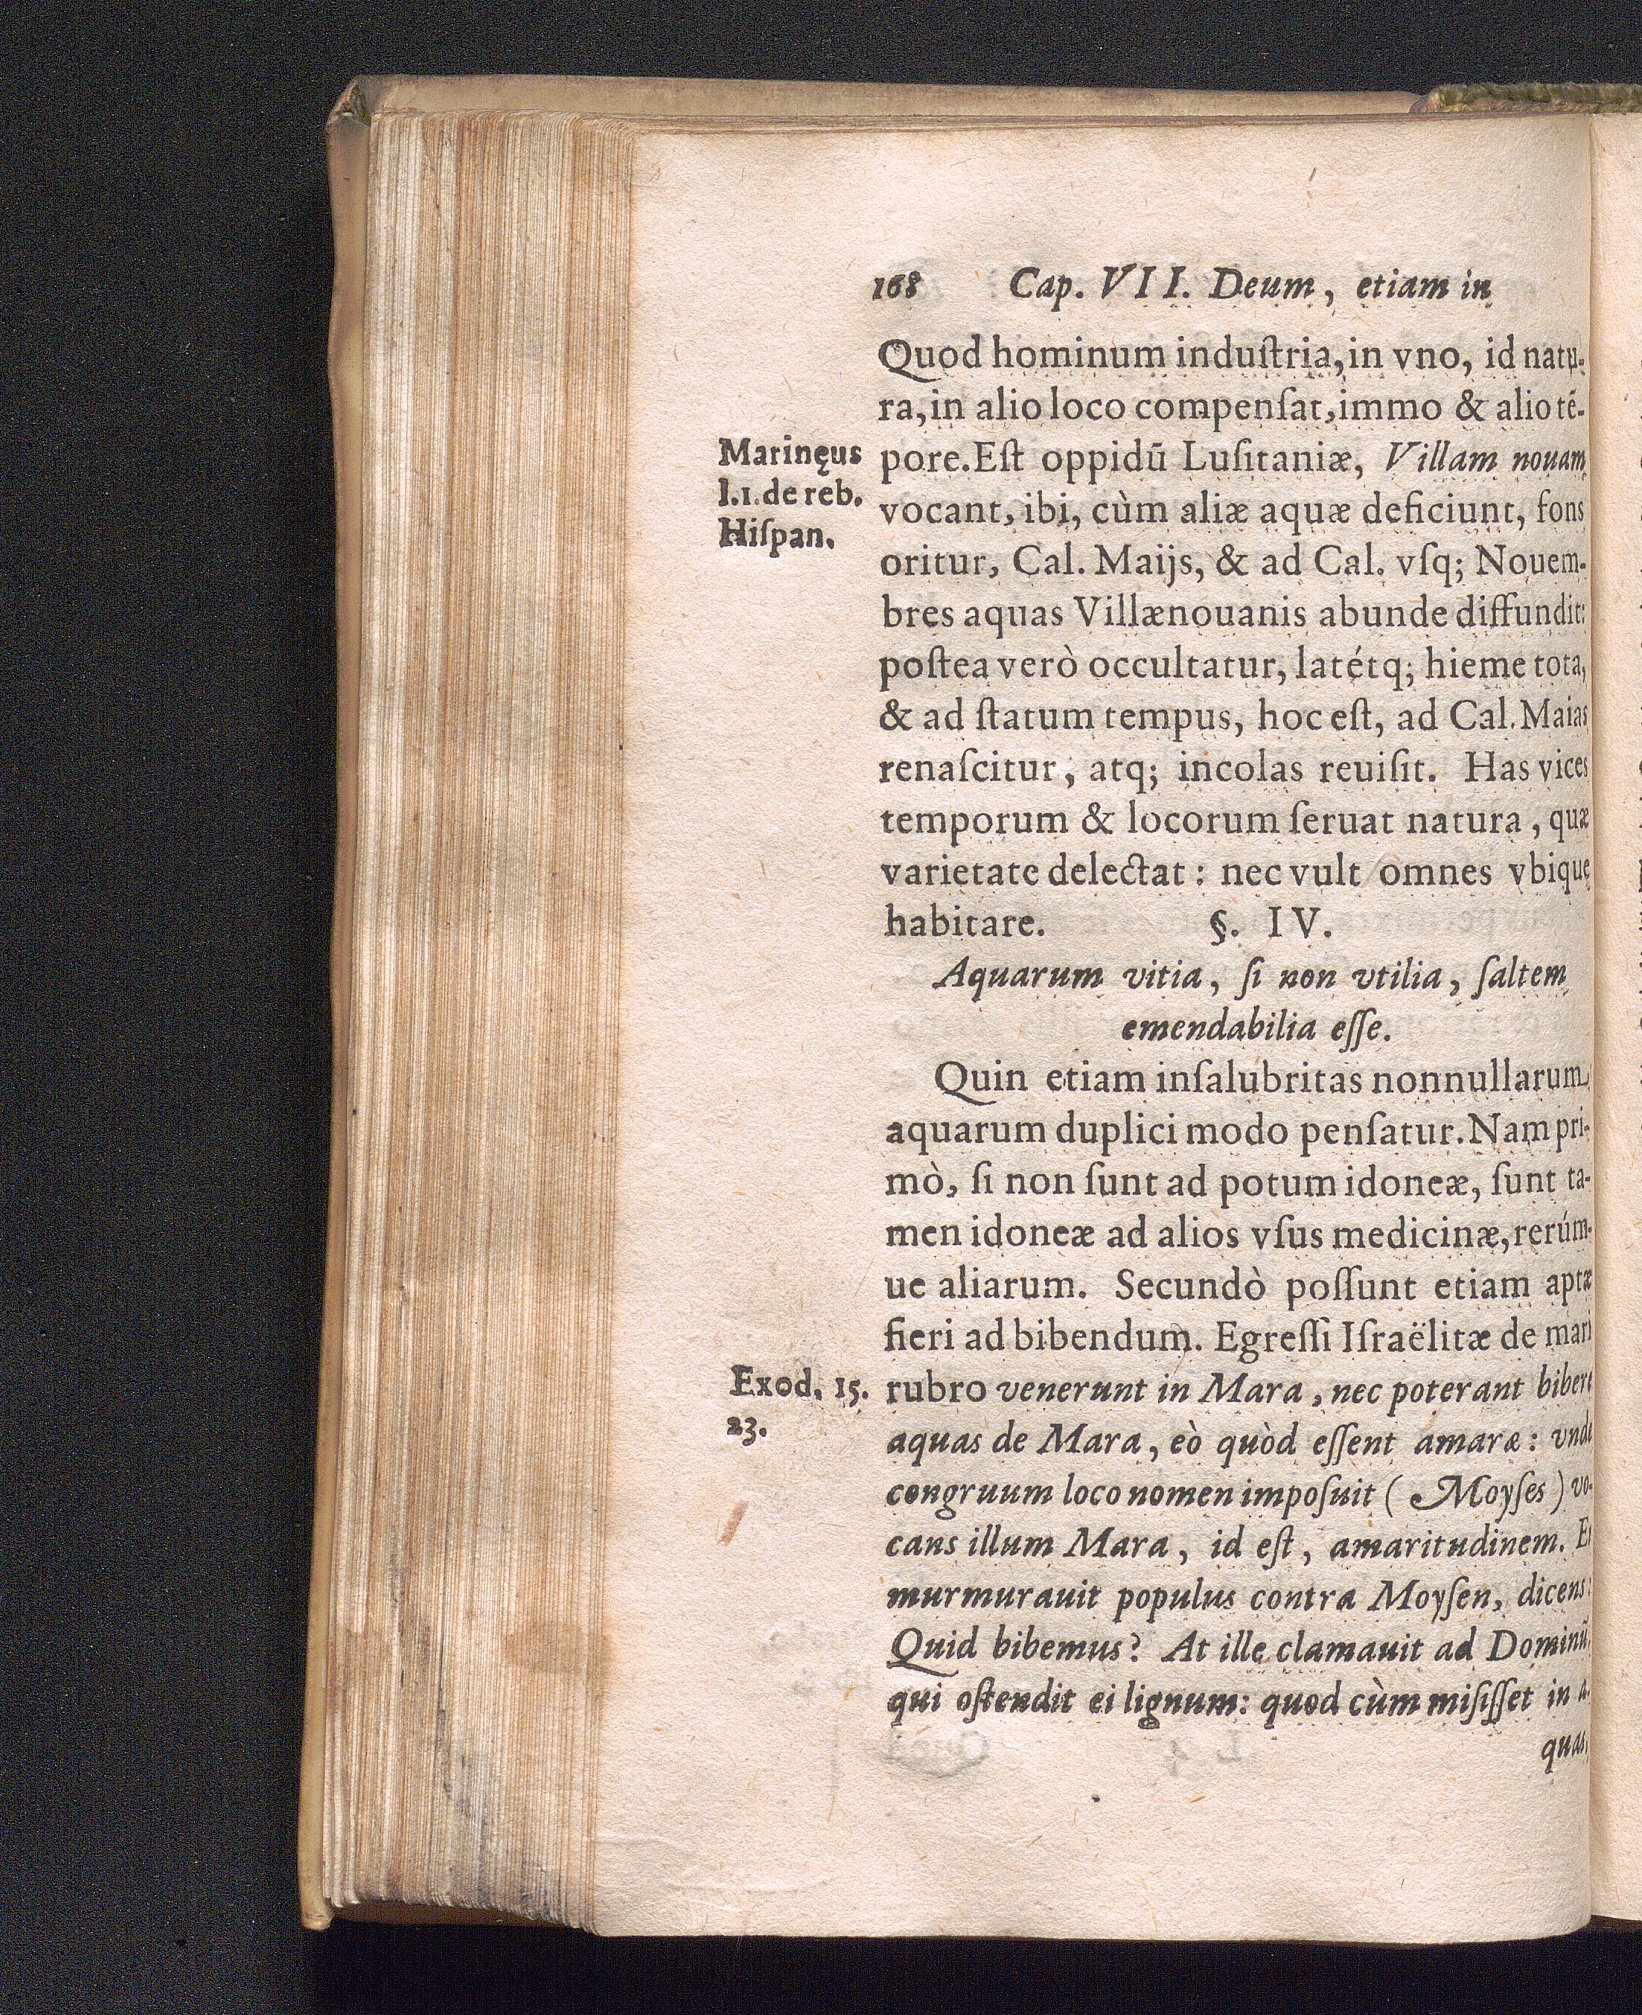 168 Cap. VII. Deum, etiam in
Quod hominum induſtria, in vno, id natu-
ra, in alio loco compenſat, immo & alio tē-
Marinęus
l.1. de reb.
Hiſpan.
pore. Eſt oppidū Luſitaniæ, Villam nouam
vocant, ibi, cùm aliæ aquæ deficiunt, fons
oritur, Cal. Maijs, & ad Cal. vſq; Nouem-
bres aquas Villænouanis abunde diffundit:
poſtea verò occultatur, latétq; hieme tota,
& ad ſtatum tempus, hoc eſt, ad Cal. Maias
renaſcitur, atq; incolas reuiſit. Has vices
temporum & locorum ſeruat natura, quæ
varietate delectat: nec vult omnes vbique
habitare. §. IV.
Aquarum vitia, ſi non vtilia, ſaltem
emendabilia eſſe.
Quin etiam inſalubritas nonnullarum
aquarum duplici modo penſatur. Nam pri-
mò, ſi non ſunt ad potum idoneæ, ſunt ta-
men idoneæ ad alios vſus medicinæ, rerúm-
ue aliarum. Secundò poſſunt etiam aptæ
fieri ad bibendum. Egreſſi Iſraëlitæ de mari
Exod. 15.
23.
rubro venerunt in Mara, nec poterant bibere
aquas de Mara, eò quòd eſſent amaræ: vnde
congruum loco nomen impoſuit (Moyſes) vo-
cans illum Mara, id eſt, amaritudinem. Et
murmurauit populus contra Moyſen, dicens:
Quid bibemus? At ille clamauit ad Dominū,
qui oſtendit ei lignum: quod cùm miſiſſet in a-
quas,